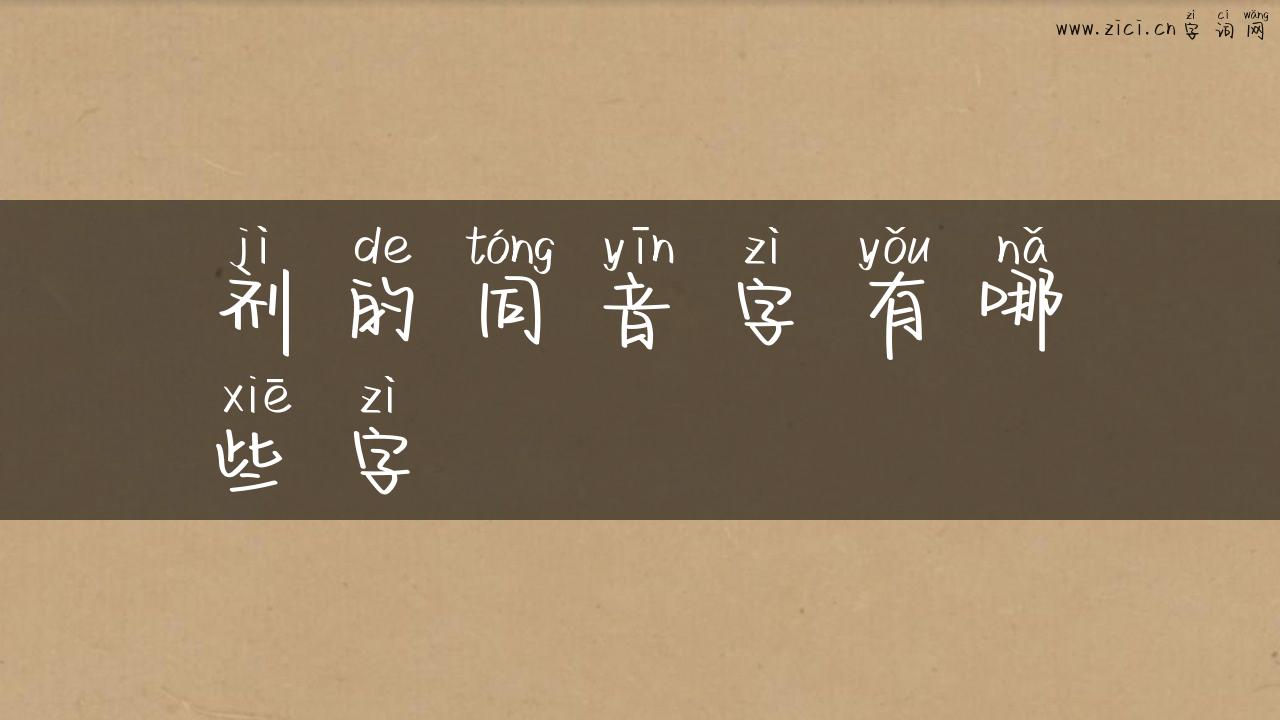 zì cí wǎng
www.zici.cn 字词网
jì de tóng yīn zì yǒu nǎ
剂的同音字有哪
xiē zì
些字